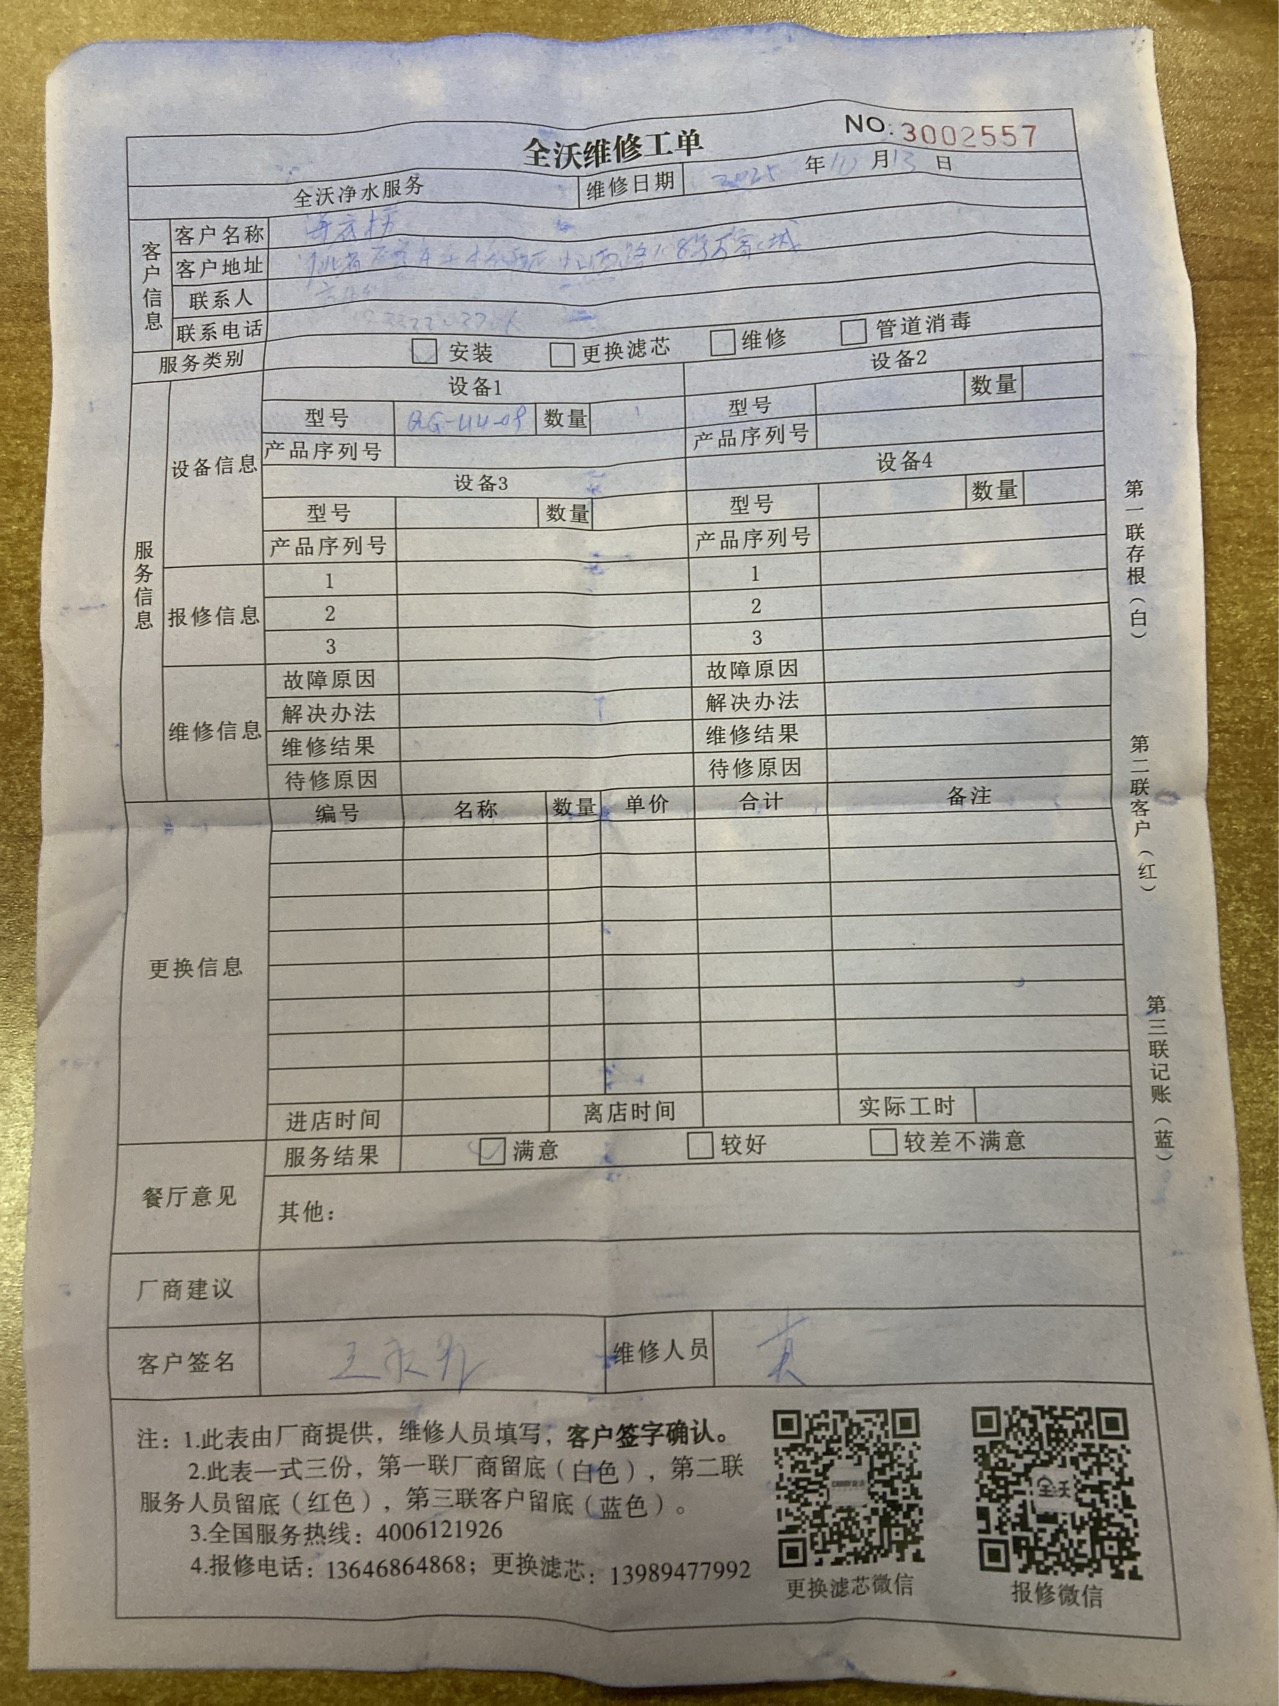 全沃维修工单
NO:3002557
全沃净水服务 维修日期 2025 年 月 13 日
客户信息
客户名称
客户地址
联系人
联系电话
服务类别 安装 更换滤芯 维修 管道消毒
服务信息
设备信息
设备1 设备2
型号 数量 型号 数量
产品序列号 产品序列号
设备3 设备4
型号 数量 型号 数量
产品序列号 产品序列号
报修信息
1 1
2 2
3 3
维修信息
故障原因 故障原因
解决办法 解决办法
维修结果 维修结果
待修原因 待修原因
更换信息
编号 名称 数量 单价 合计 备注
进店时间 离店时间 实际工时
餐厅意见
服务结果 满意 较好 较差不满意
其他：
厂商建议
客户签名 维修人员
注：1.此表由厂商提供，维修人员填写，客户签字确认。
2.此表一式三份，第一联厂商留底（白色），第二联
服务人员留底（红色），第三联客户留底（蓝色）。
3.全国服务热线：4006121926
4.报修电话：13646864868；更换滤芯：13989477992
更换滤芯微信
全沃
报修微信
第一联存根（白）
第二联客户（红）
第三联记账（蓝）